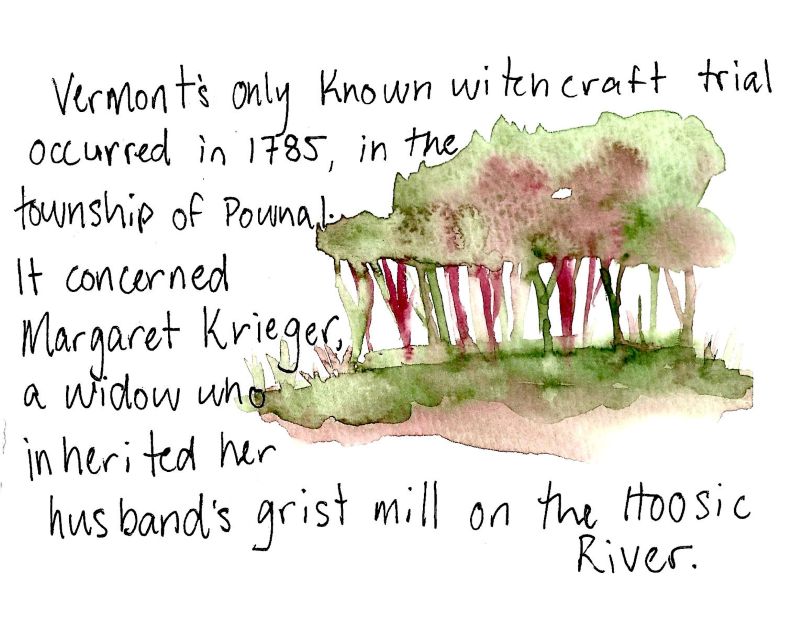 Vermont's only known witchcraft trial
occurred in 1785, in the
township of Pownal.
It concerned
Margaret Krieger,
a widow who
inherited her
husband's grist mill on the Hoosic
River.